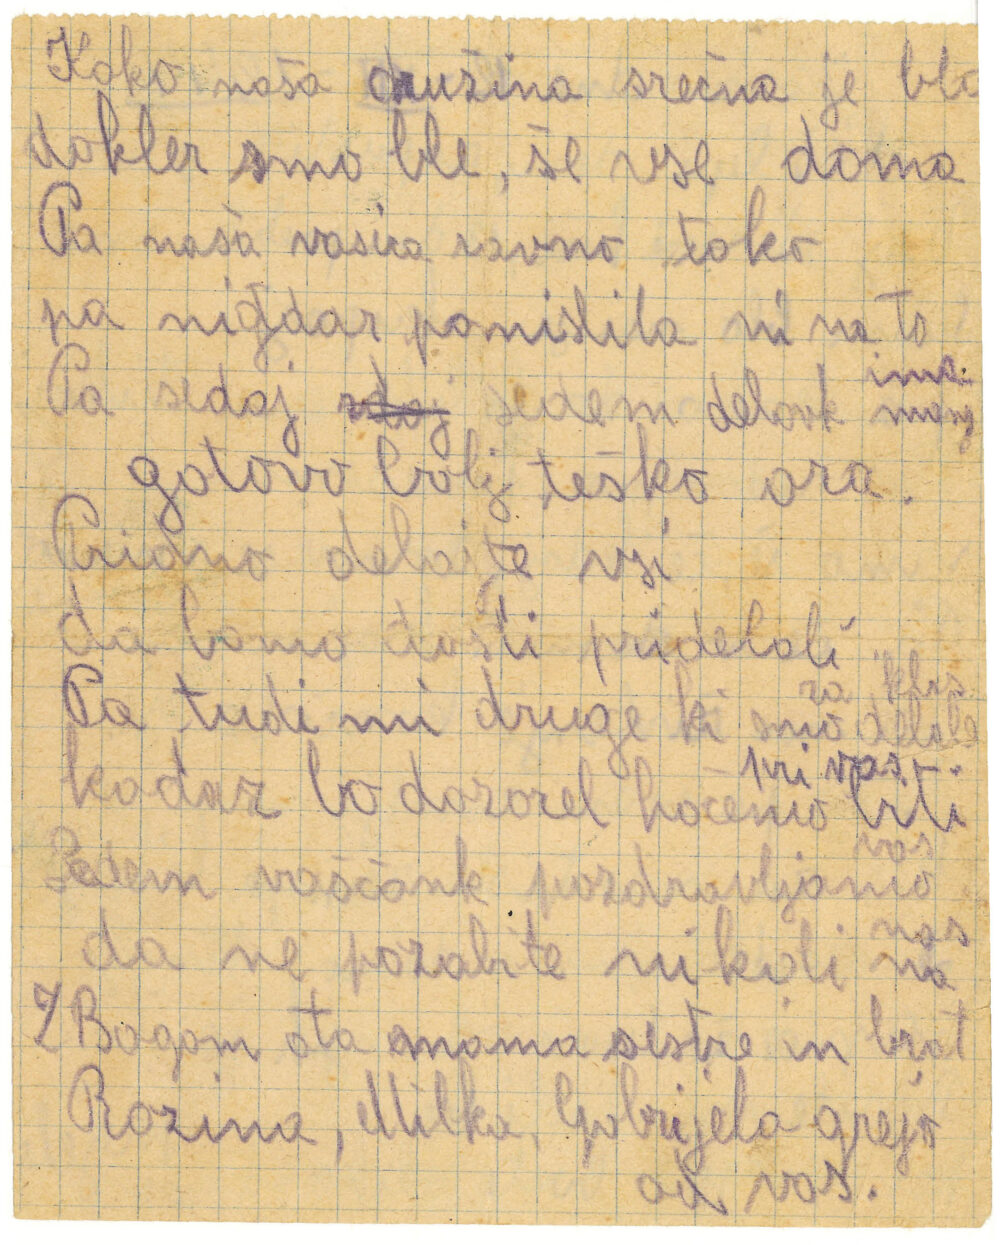 Kako naša družina srečna je bla
dokler smo ble, še vse doma
Pa naša vasica ravno tako
pa nigdar pomislila ni na to
Pa sedaj sedaj sedem delovk ima
manj
gotovo bolj teško ora.
Pridno delajte vsi
da bomo dosti pridelali
Pa tudi mi druge ki smo delale
za kluc
kadar bo dozorel hočemo biti
pri vas.
Sedem vaščank pozdravljamo
vas
da ne pozabite nikoli na
nas
Z Bogom ata mama sestre in brat
Rozina, Milka, Gabrijela grejo
od vas.